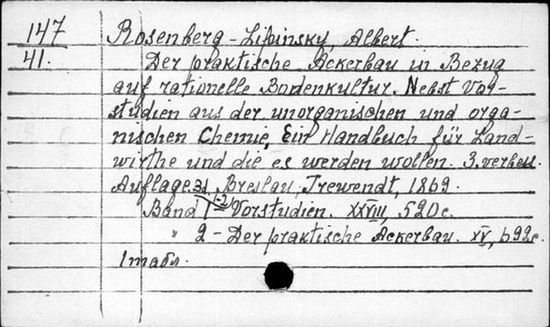 147
41.
Rosenberg-Lipinsky, Albert.
Der praktische Ackerbau in Bezug
auf rationelle Bodenkultur. Nebst Vor-
studien aus der unorganischen und orga-
nischen Chemie, Ein Handbuch für Land-
wirthe und die es werden wollen. 3. verbess.
Auflage. Breslau, Trewendt, 1869.
Band 1 - Vorstudien. XXVIII, 520c.
" 2 - Der praktische Ackerbau. XV, 692c.
1 табл.